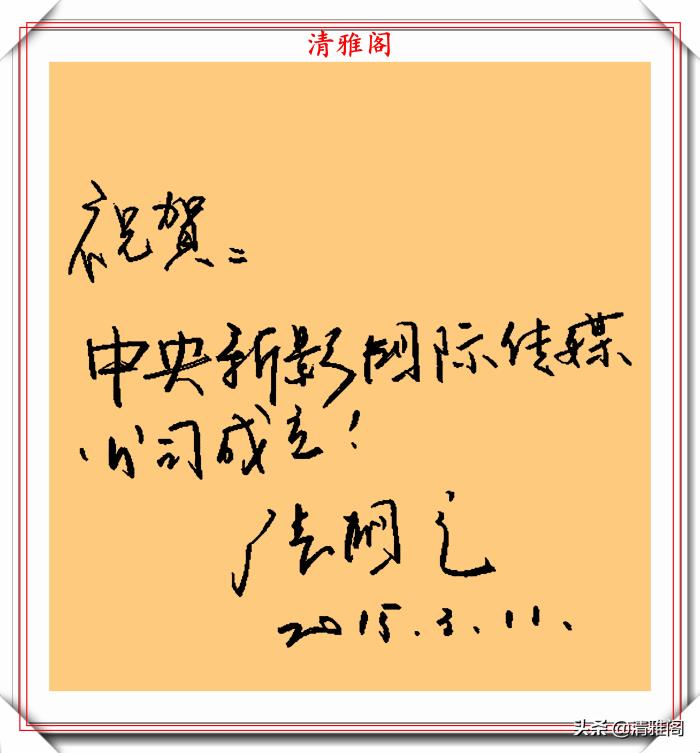 清雅阁
祝賀:
中央新影国际传媒
公司成立!
张国立
2015.3.11.
头条 @清雅阁